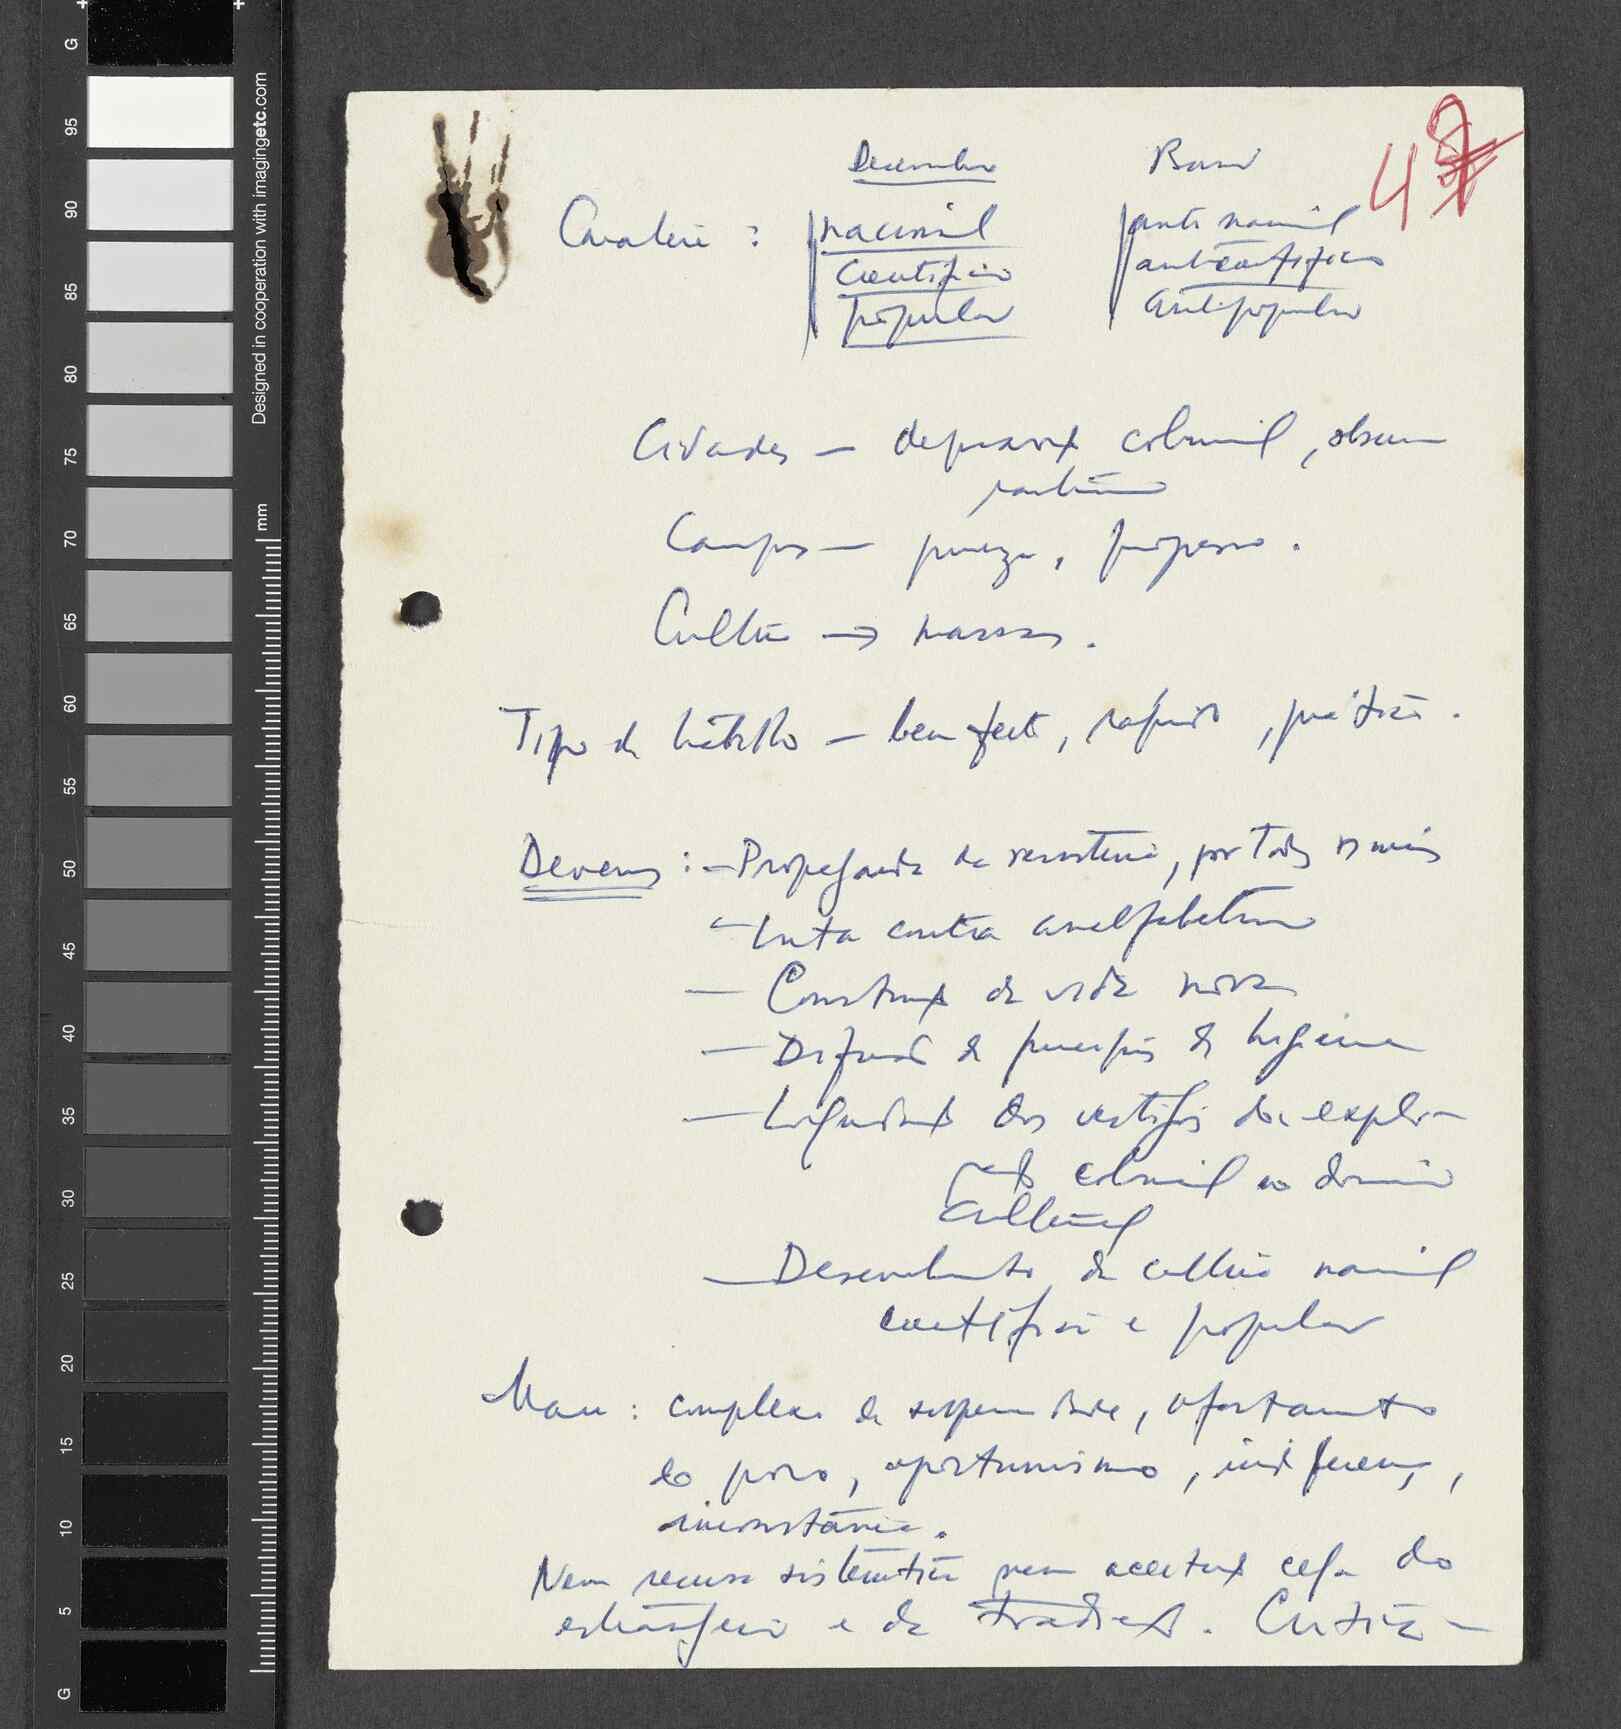 G
95
90
85
80
75
70
65
60
55
50
45
40
35
30
25
20
15
10
5
G
Designed in cooperation with imagingetc.com
mm
4
nacional
científico
popular
anti nacional
anticientífico
antipopular
Cidades — colonial, obscu
rantismo
Campos — pureza, progresso.
Cultura → massas.
Tipo de trabalho — bem feito, rápido, prático.
Deveres : — Propaganda da resistência, por todos os meios
— Luta contra analfabetismo
— Construção da vida nova
— Difusão de princípios de higiene
— Liquidação dos vestígios da explo-
ração colonial no domínio
cultural
— Desenvolvimento da cultura nacional
científica e popular
complexo de afastamento
do povo, oportunismo, indiferença,
inconstância.
Nem recusa sistemática nem aceitação cega do
estrangeiro e da tradição. Crítica —